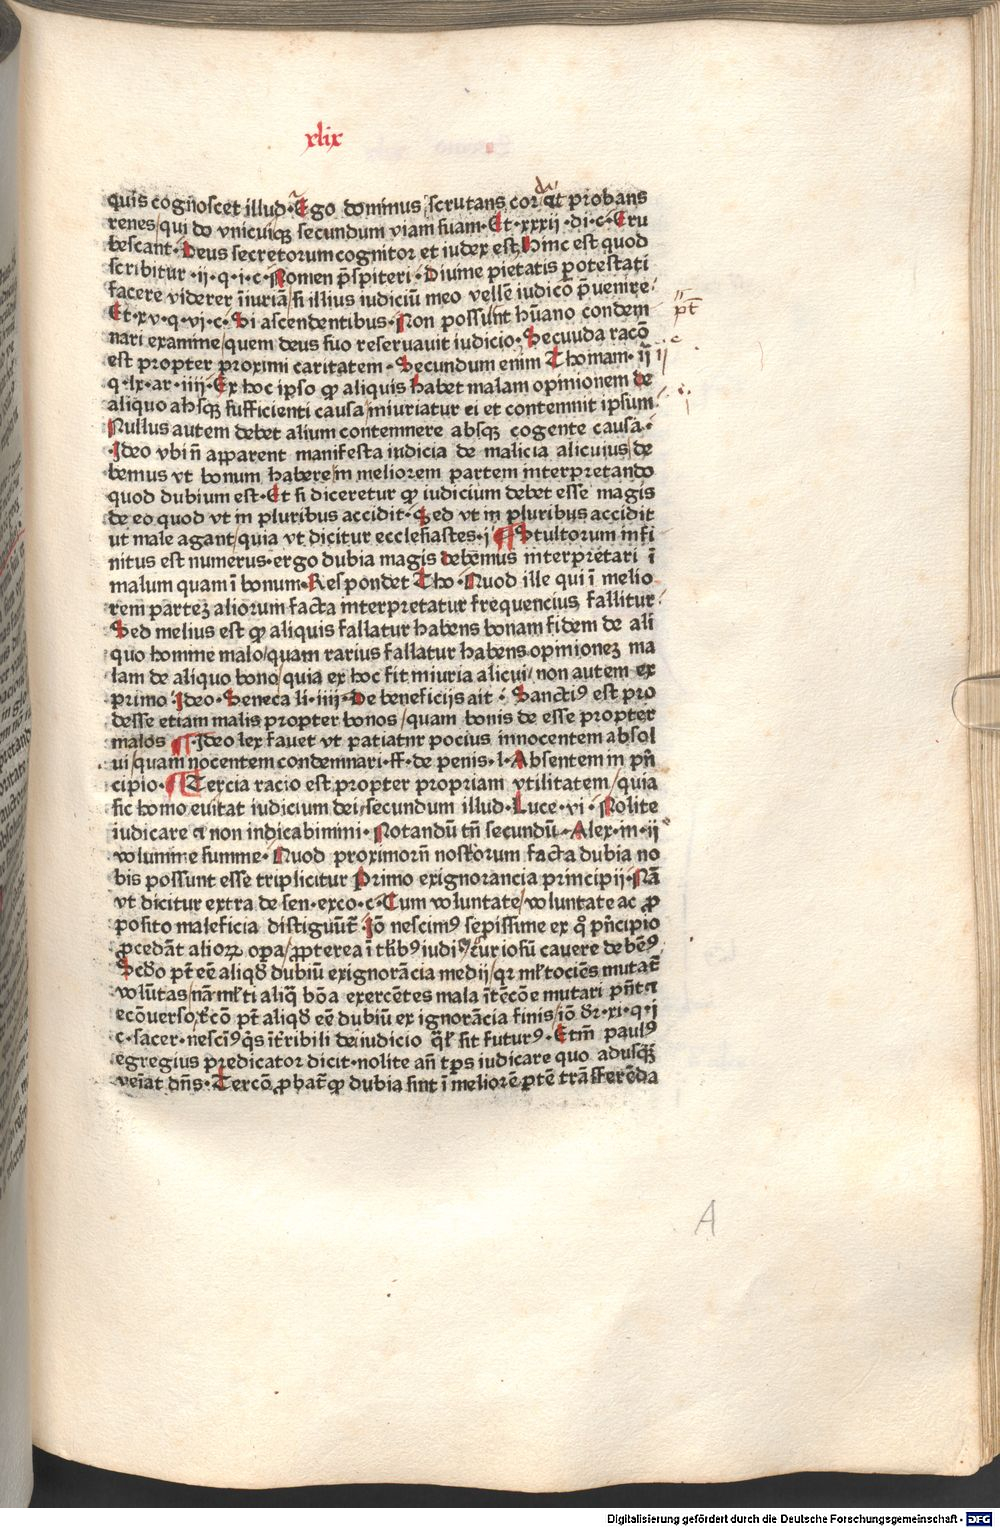 xlix
quis cognoscet illud·Ego dominus /scrutans cor qt probans
renes/qui do vnicuiqꝫ secundum viam suam·Et·xxxij·di·c·Eru
bescant·Deus secretorum cognitor et iudex est/hinc est quod
scribitur·ij·q·i·c·Nomen p̄spiteri·Diuine pietatis potestati
facere viderer īiuriā/si illius iudiciū meo vellē iudicō p̄uenire
Et·xv·q·vj·c·Si ascendentibus·Non possunt hūano condem
nari examine/quem deus suo reseruauit iudicio·Secuuda racō
est propter proximi caritatem·Secundum enim Thomam·ij ij
q·lx·ar·iiij·Ex hoc ipso ꝙ aliquis habet malam opinionem de
aliquo absqꝫ sufficienti causa/iniuriatur ei et contemnit ipsum
Nullus autem debet alium contemnere absqꝫ cogente causa·
Ideo vbi n̄ apparent manifesta iudicia de malicia alicuius/de
bemus vt bonum habere/in meliorem partem interpretando
quod dubium est·Et si diceretur ꝙ iudicium debet esse magis
de eo quod vt in pluribus accidit·Sed vt in pluribus accidit
ut male agant/quia vt dicitur ecclesiastes·j ¶ Stultorum infi
nitus est numerus·ergo dubia magis debemus interpretari ī
malum quam ī bonum·Respondet Tho·Nuod ille qui ī melio
rem parteꝫ aliorum facta interpretatur frequencius fallitur·
Sed melius est ꝙ aliquis fallatur habens bonam fidem de ali
quo homine malo/quam rarius fallatur habens opinioneꝫ ma
lam de aliquo bono/quia ex hoc fit iniuria alicui/non autem ex
primo·Ideo·Seneca li·iiij·De beneficijs ait·Sanctiꝰ est pro
desse etiam malis propter bonos/quam bonis de esse propter
malos ¶·Ideo lex fauet vt patiatnr pocius innocentem absol
ui/quam nocentem condemnari·ff·de penis·l·Absentem in pn̄
cipio·¶ Tercia racio est propter propriam vtilitatem/quia
sic homo euitat iudicium dei/secundum illud·Luce·vi·Nolite
iudicare et non indicabimini·Notandū tn̄ secundū·Alex·in·ij
volumine summe·Nuod proximorn̄ nostorum facta dubia no
bis possunt esse triplicitur Primo exignorancia principij·Nā
vt dicitur extra de sen·exco·c·Cum voluntate/voluntate ac ꝓ
posito maleficia distiguūt̄·Iō nescimꝰ sepissime ex qͦ pn̄cipio
ꝓcedāt alioꝝ opa/ꝓpterea ī
Scd̄o pt̄ eē aliqd̄ dubiū exignorācia medij/qꝛ ml̄tociēs mutat̄
volūtas/nā ml̄ti aliq̄ bōa exercētes mala
ecōuerso/t̄cō pt̄ aliqd̄ eē dubiū ex ignorācia finis/iō dr̄·xi·q·ij
c·sacer·nesciꝰ qͥs īt̄ribili dei iudicio ql̄ sit futurꝰ·Etm̄ paulꝰ
egregius predicator dicit·nolite an̄ tp̄s iudicare quo adusqꝫ
veīat dn̄s·Tercō ꝓbat̄ ꝙ dubia sint ī meliorē ptē trāsferēda
A
Digitalisierung gefördert durch die Deutsche Forschungsgemeinschaft - DFG